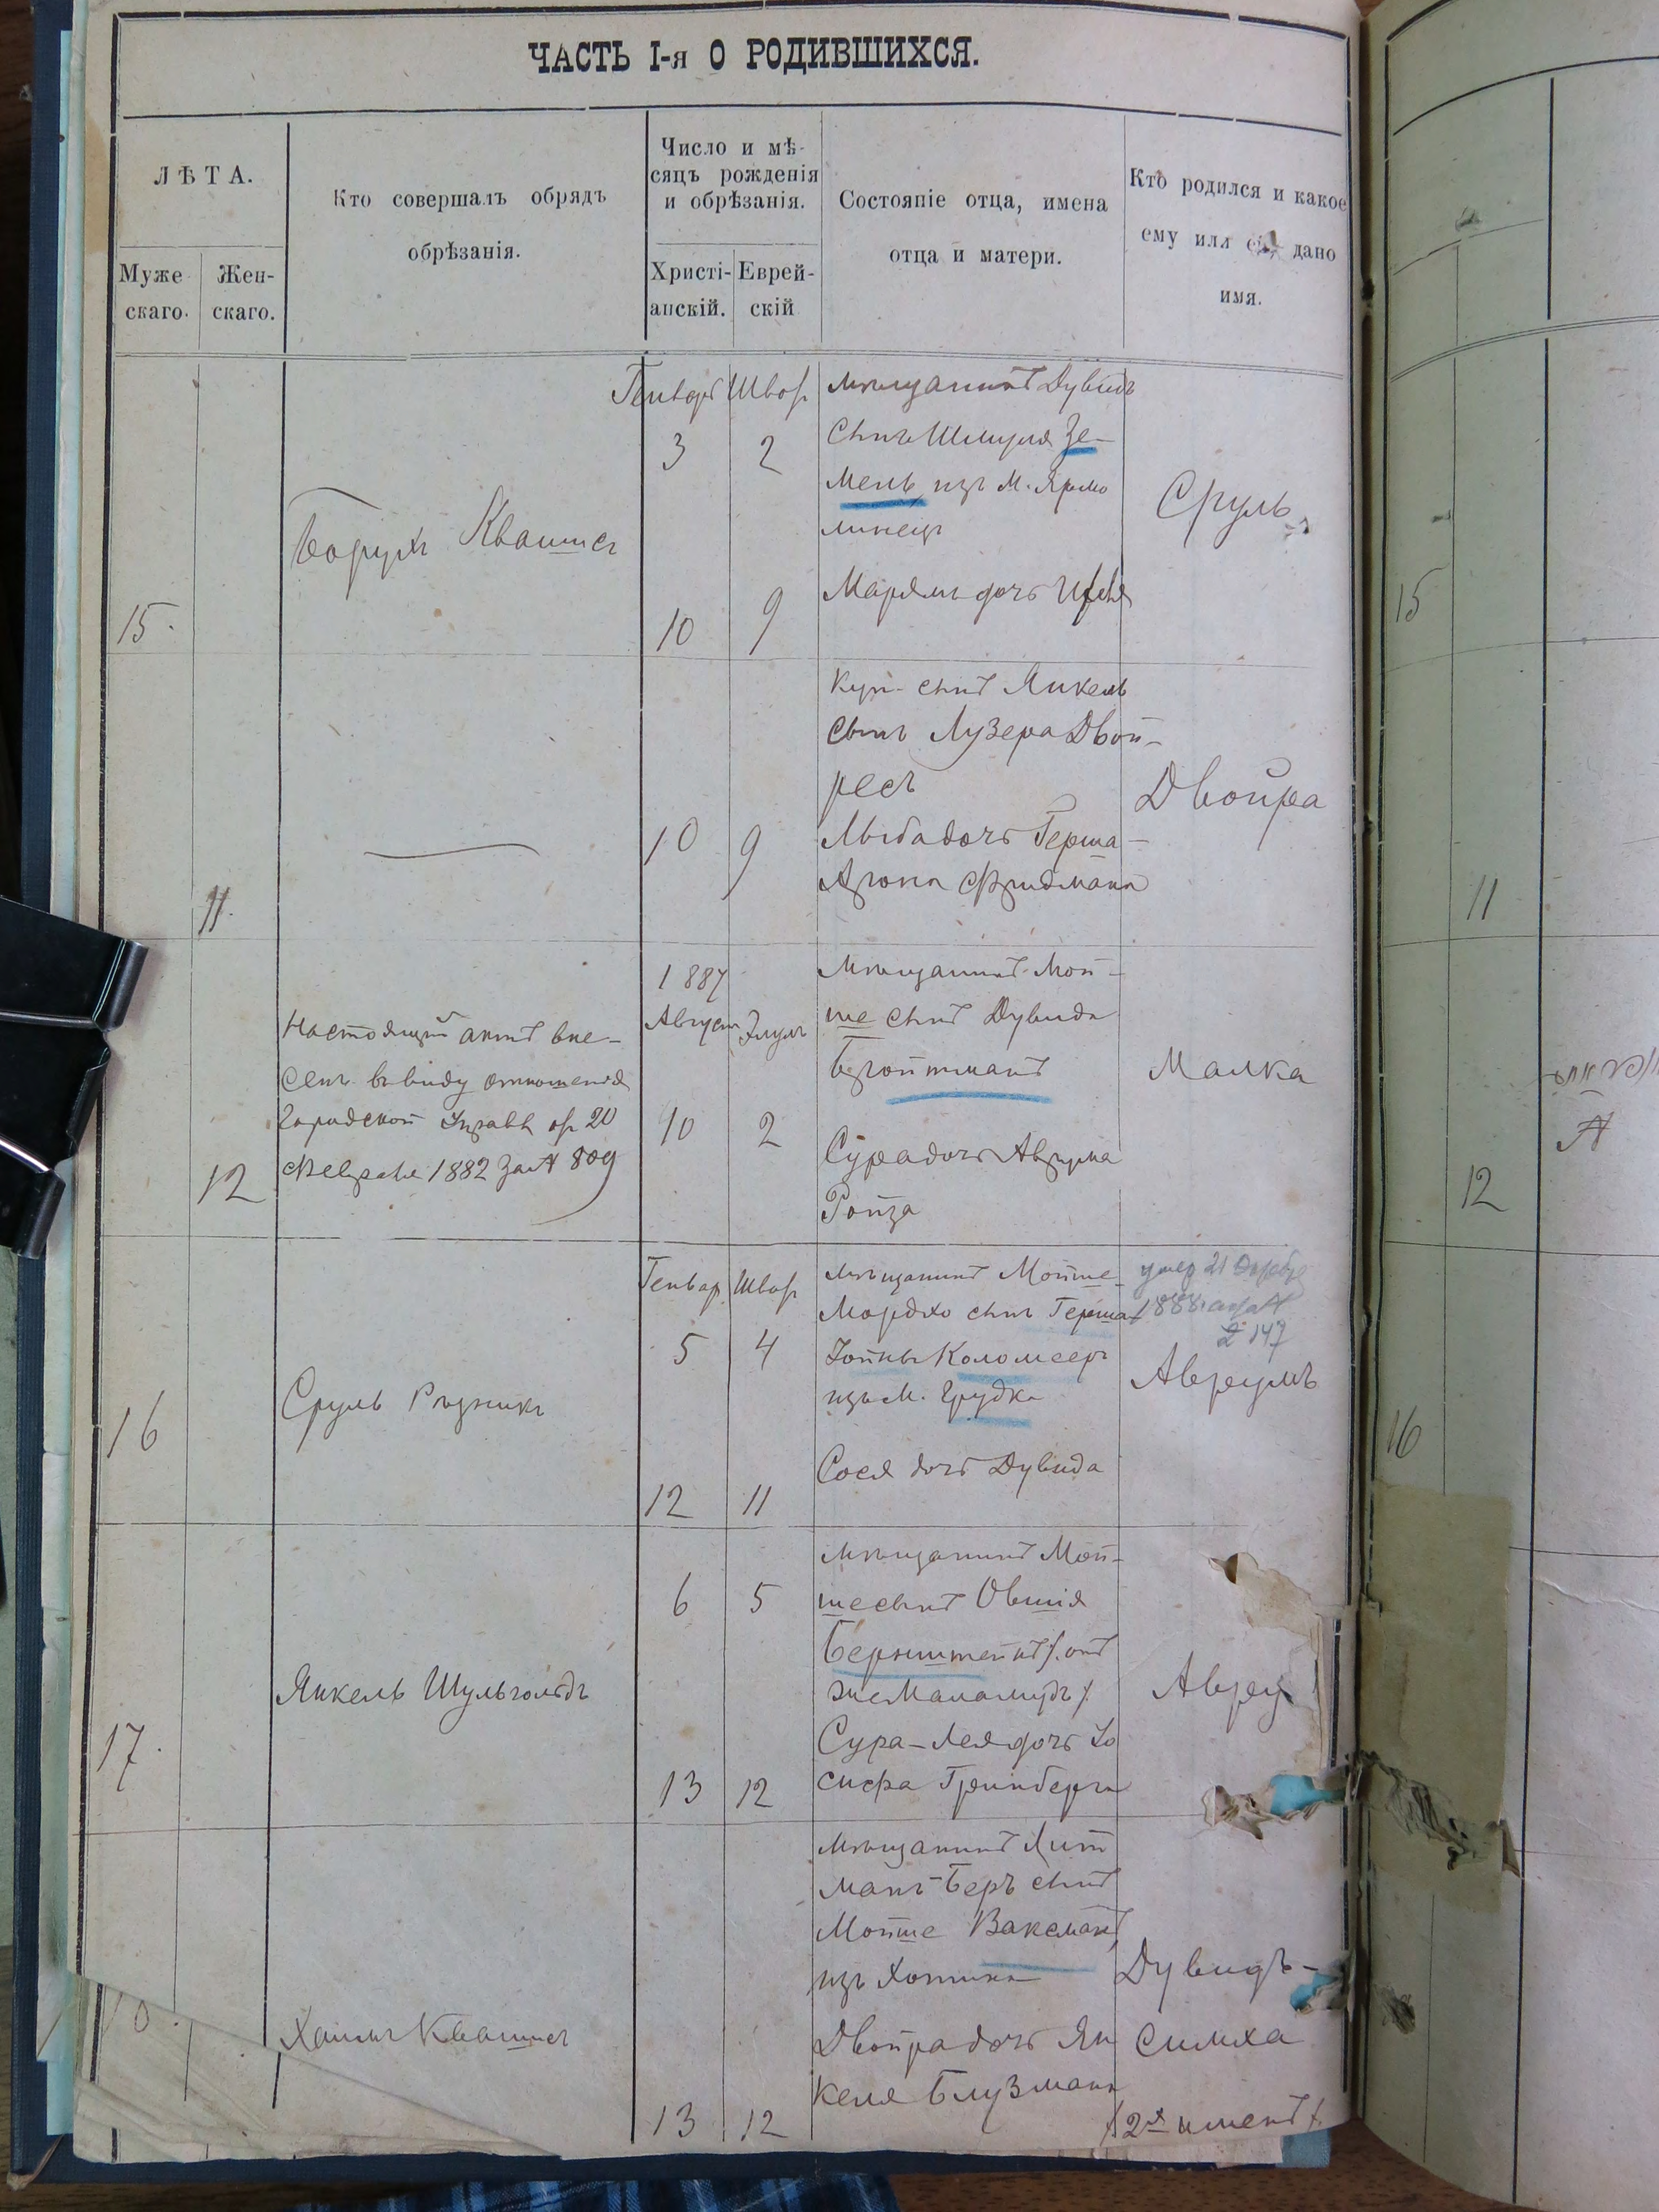 ЧАСТЬ I-я О РОДИВШИХСЯ.
ЛѢТА.
Муже
скаго.
Жен-
скаго.
Кто совершалъ обрядъ
обрѣзанія.
Число и мѣ-
сяцъ рожденія
и обрѣзанія.
Христі-
анскій.
Еврей-
скій
Состояніе отца, имена
отца и матери.
Кто родился и какое
ему или ей дано
имя.
15.
Борухъ Квашис
Генваръ Шват
3 2
10 9
мѣщанинъ Дувидъ
сынъ Шмуля Зе-
мель изъ М. Ярмо
линецъ
Марямъ дочь
Сруль
11.
10 9
Куп. сынъ Янкель
сынъ Лузера Двой-
ресъ
Лыба дочь Герша-
Арона Фридмана
Двойра
12
Настоящій актъ вне-
сенъ въ виду отношенія
Городской Управы от 20
1882 за № 809
1887
Августъ Элулъ
10 2
мѣщанинъ Мой-
ше сынъ Дувида
Бройтманъ
Сура дочь Аврума
Ройза
Малка
16
Сруль Рѣзникъ
Генвар Шват
5 4
12 11
мѣщанинъ Мойше
Мордхо сынъ Герша
Іойны Коломеер
изъ М. Грудка
Сося дочь Дувида
умер 21
1888
№ 147
Аврумъ
17.
Янкель Шульгольдъ
6 5
13 12
мѣщанинъ Мой-
ше сынъ Овшія
Бернштейнъ /: онъ
же Маламудъ /:
Сура-Лея дочь Іо
сифа Гринберга
Авру
Хаимъ Квашис
13 12
мѣщанинъ Лит
манъ-Беръ сынъ
Мойше Ваксманъ
изъ Хотина
Двойра дочь Ян
келя Блузмана
Дувидъ-
Симха
/2х именъ/
15
11
12
16